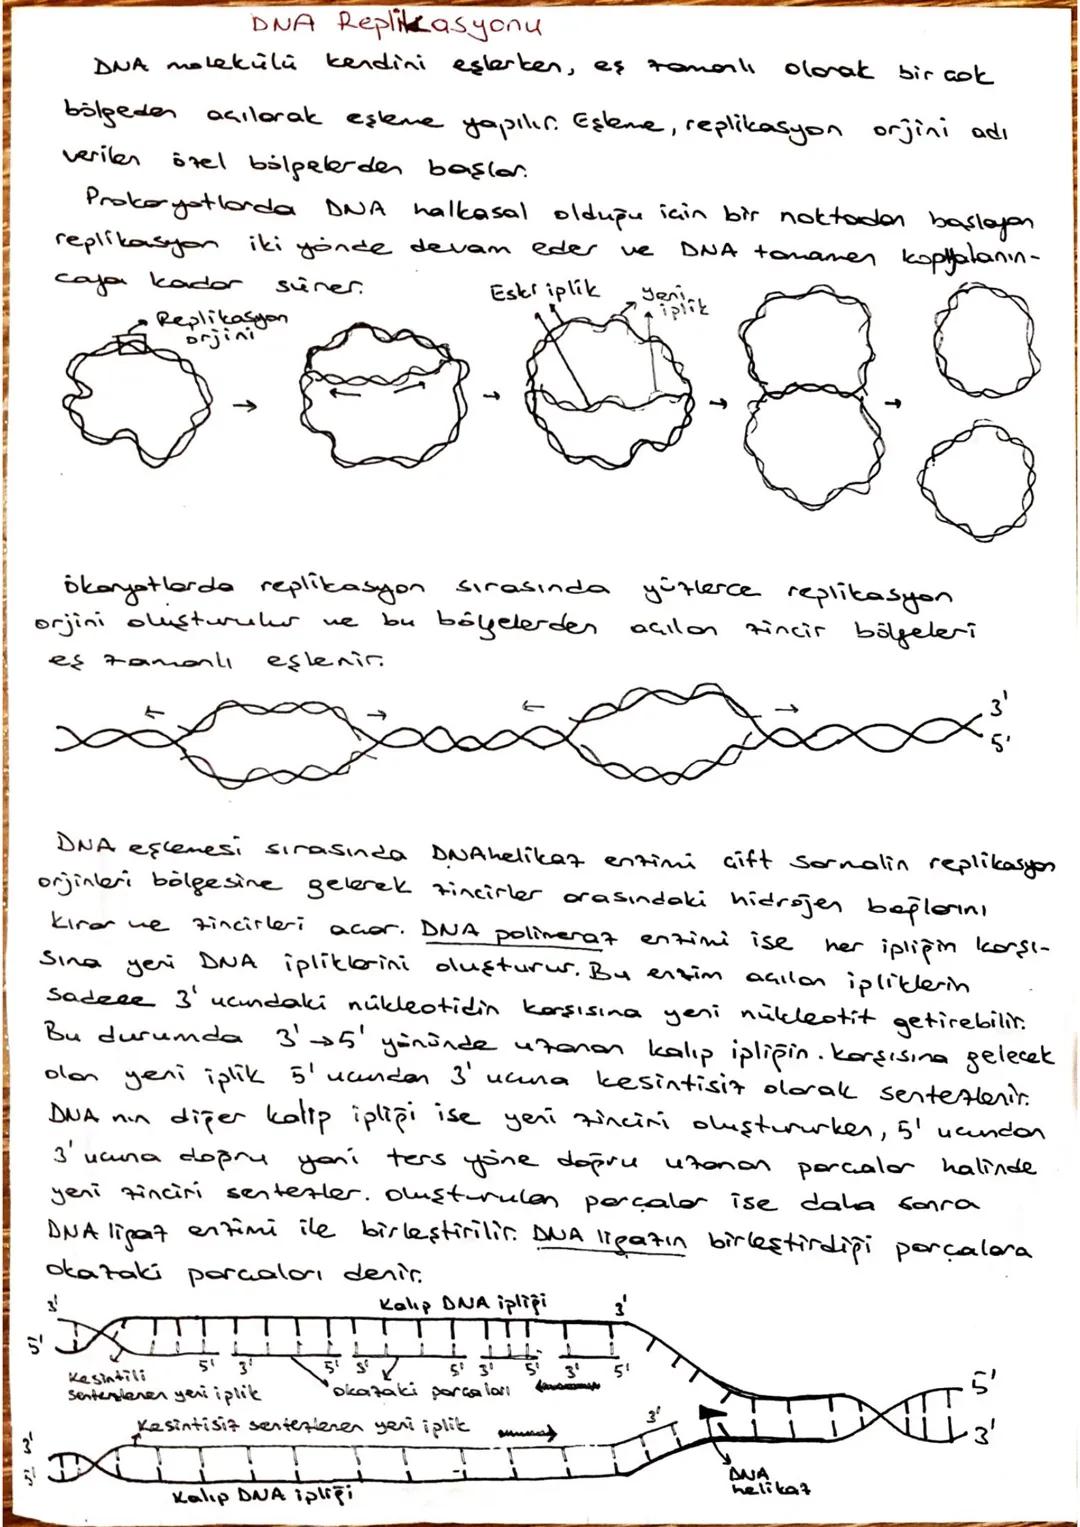 DNA Replikasyonu
DNA molekülü kendini eşlerken, eş zamanlı olarak bir çok
bölgeden açılarak eşleme yapılır. Eşleme, replikasyon orjini adı
verilen özel bölgelerden başlar.
Prokaryotlarda DNA halkasal olduğu için bir noktadan başlayan
replikasyon iki yönde devam eder ve DNA tamamen kopyalanın-
caya kadar sürer.
Eski iplik
yeni
iplik
Replikasyon
orjini
ökaryotlarda replikasyon sırasında yüzlerce replikasyon
orjini oluşturulur ve bu bölgelerden açılan zincir bölgeleri
eş zamanlı eşlenir.
3'
5'
DNA eşlemesi sırasında DNA helikaz enzimi çift sarmalın replikasyon
orjinleri bölgesine gelerek zincirler arasındaki hidrojen bağlarını
kırar ve zincirleri açar. DNA polimeraz enzimi ise her ipliğin karşı-
sına yeni DNA ipliklerini oluşturur. Bu enzim açılan ipliklerin
sadece 3' ucundaki nükleotidin karşısına yeni nükleotit getirebilir.
Bu durumda 3'→5' yönünde uzanan kalıp ipliğin karşısına gelecek
olan yeni iplik 5' ucundan 3' ucuna kesintisiz olarak sentezlenir.
DNA nın diğer kalıp ipliği ise yeni zinciri oluştururken, 5' ucundan
3' ucuna doğru yani ters yöne doğru uzanan parçalar halinde
yeni zinciri sentezler. Oluşturulan parçalar ise daha sonra
DNA ligaz enzimi ile birleştirilir. DNA ligazın birleştirdiği parçalara
okazaki parçaları denir.
3' Kalıp DNA ipliği 3'
5'
5' 3' 5' 5' 3' 5' 3' 5'
Kesintili
sentezlenen yeni iplik
okazaki parçaları
5'
Kesintisiz sentezlenen yeni iplik
3'
3'
3'
DNA
helikaz
Kalıp DNA ipliği